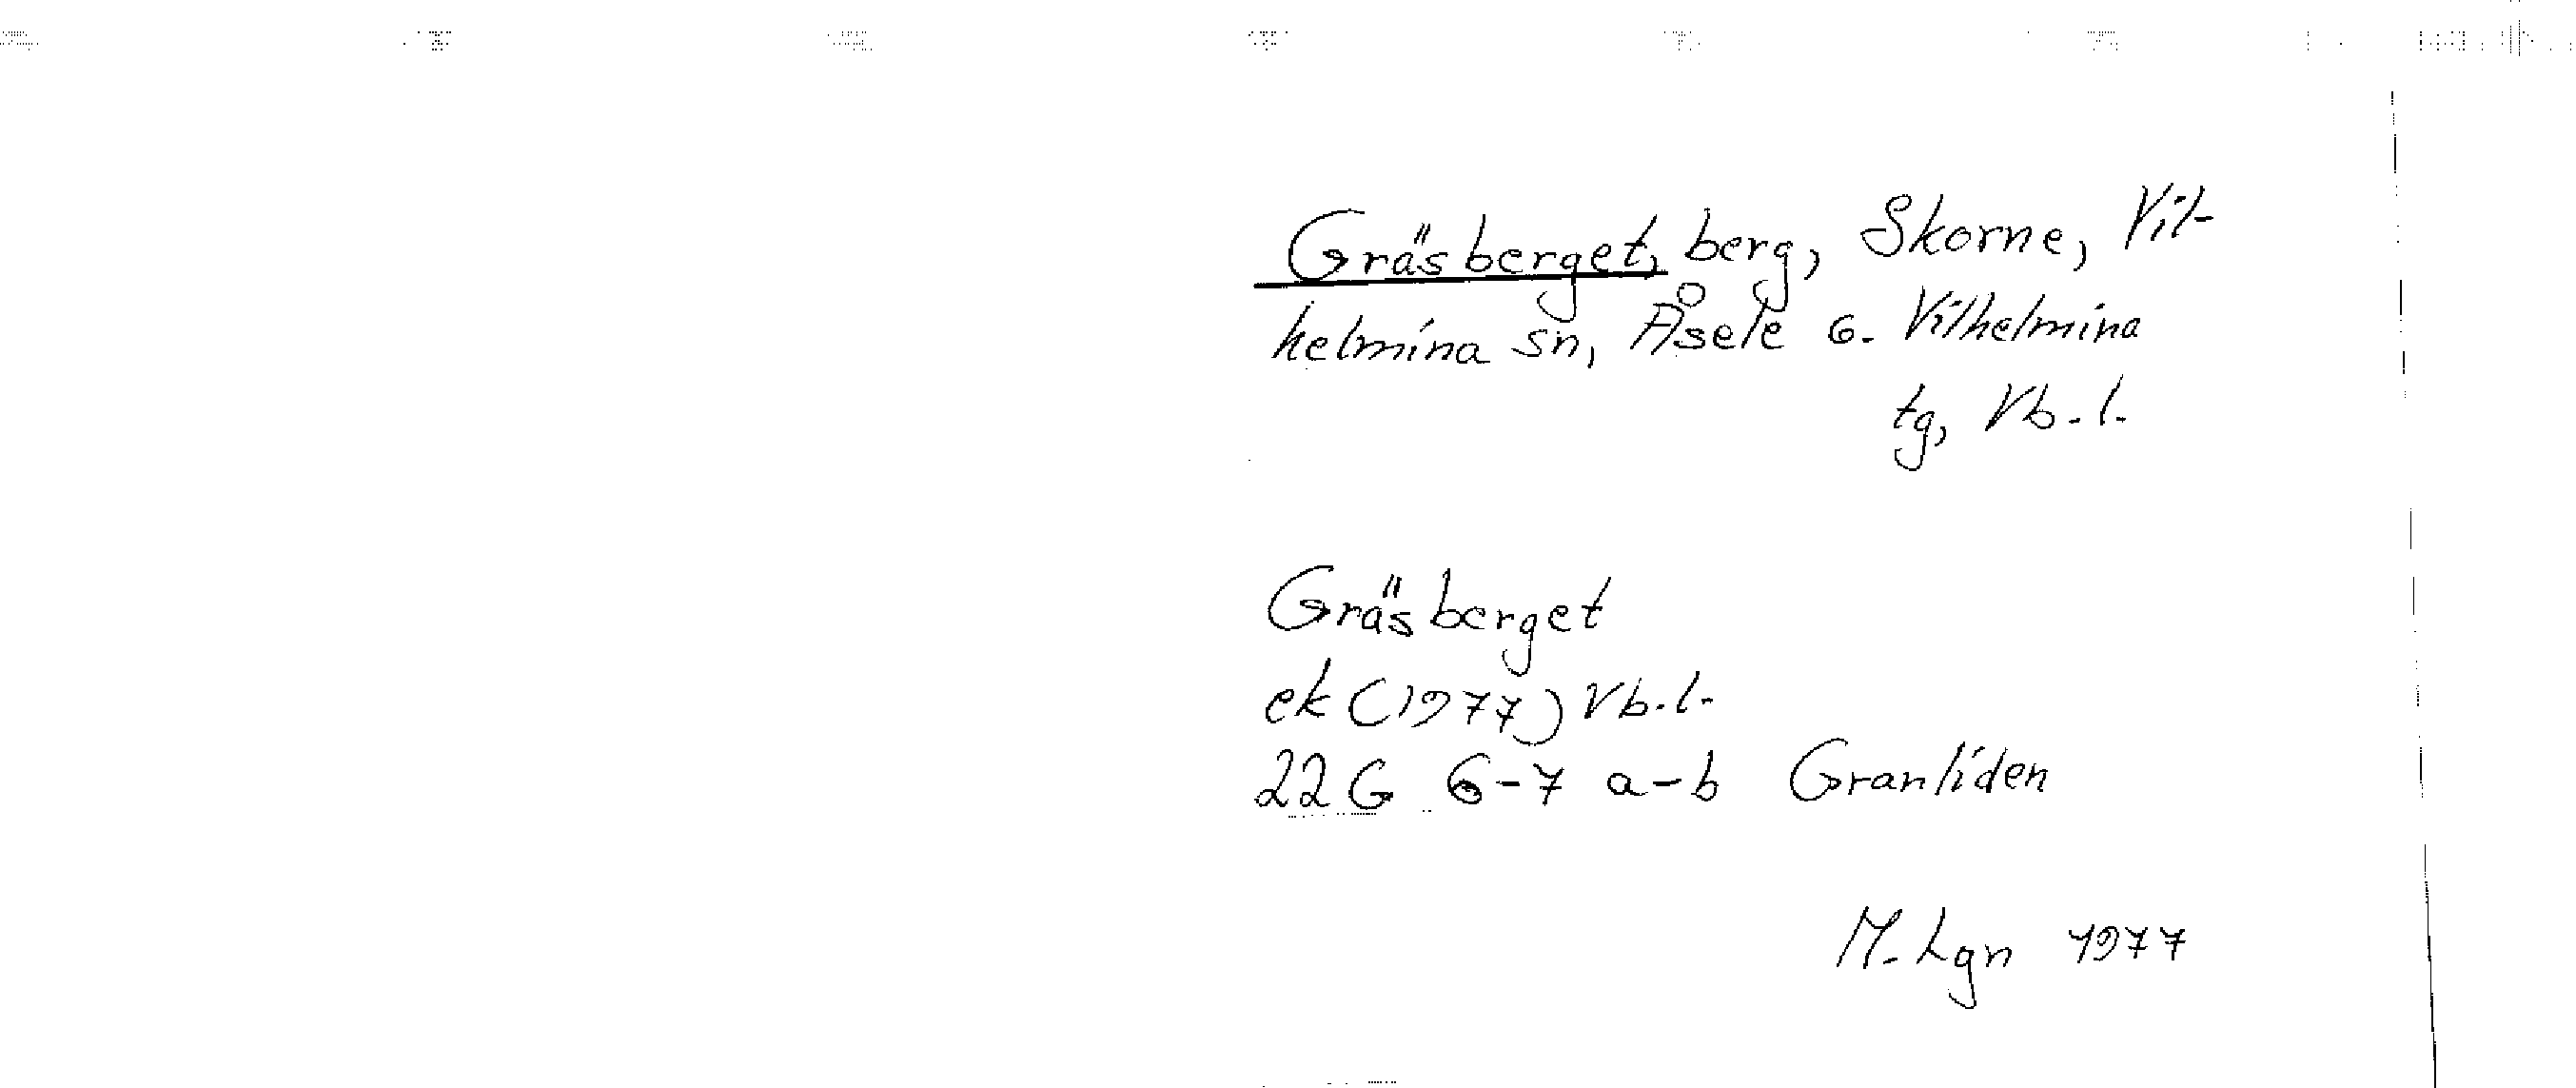 Gräsberget, berg, Skorne, Vil-
helmina sn, Åsele o. Vilhelmina
tg, Vb.l.
Gräsberget
ek (1977) Vb.l.
22G 6-7 a-b Granliden
M. Lgn 1977